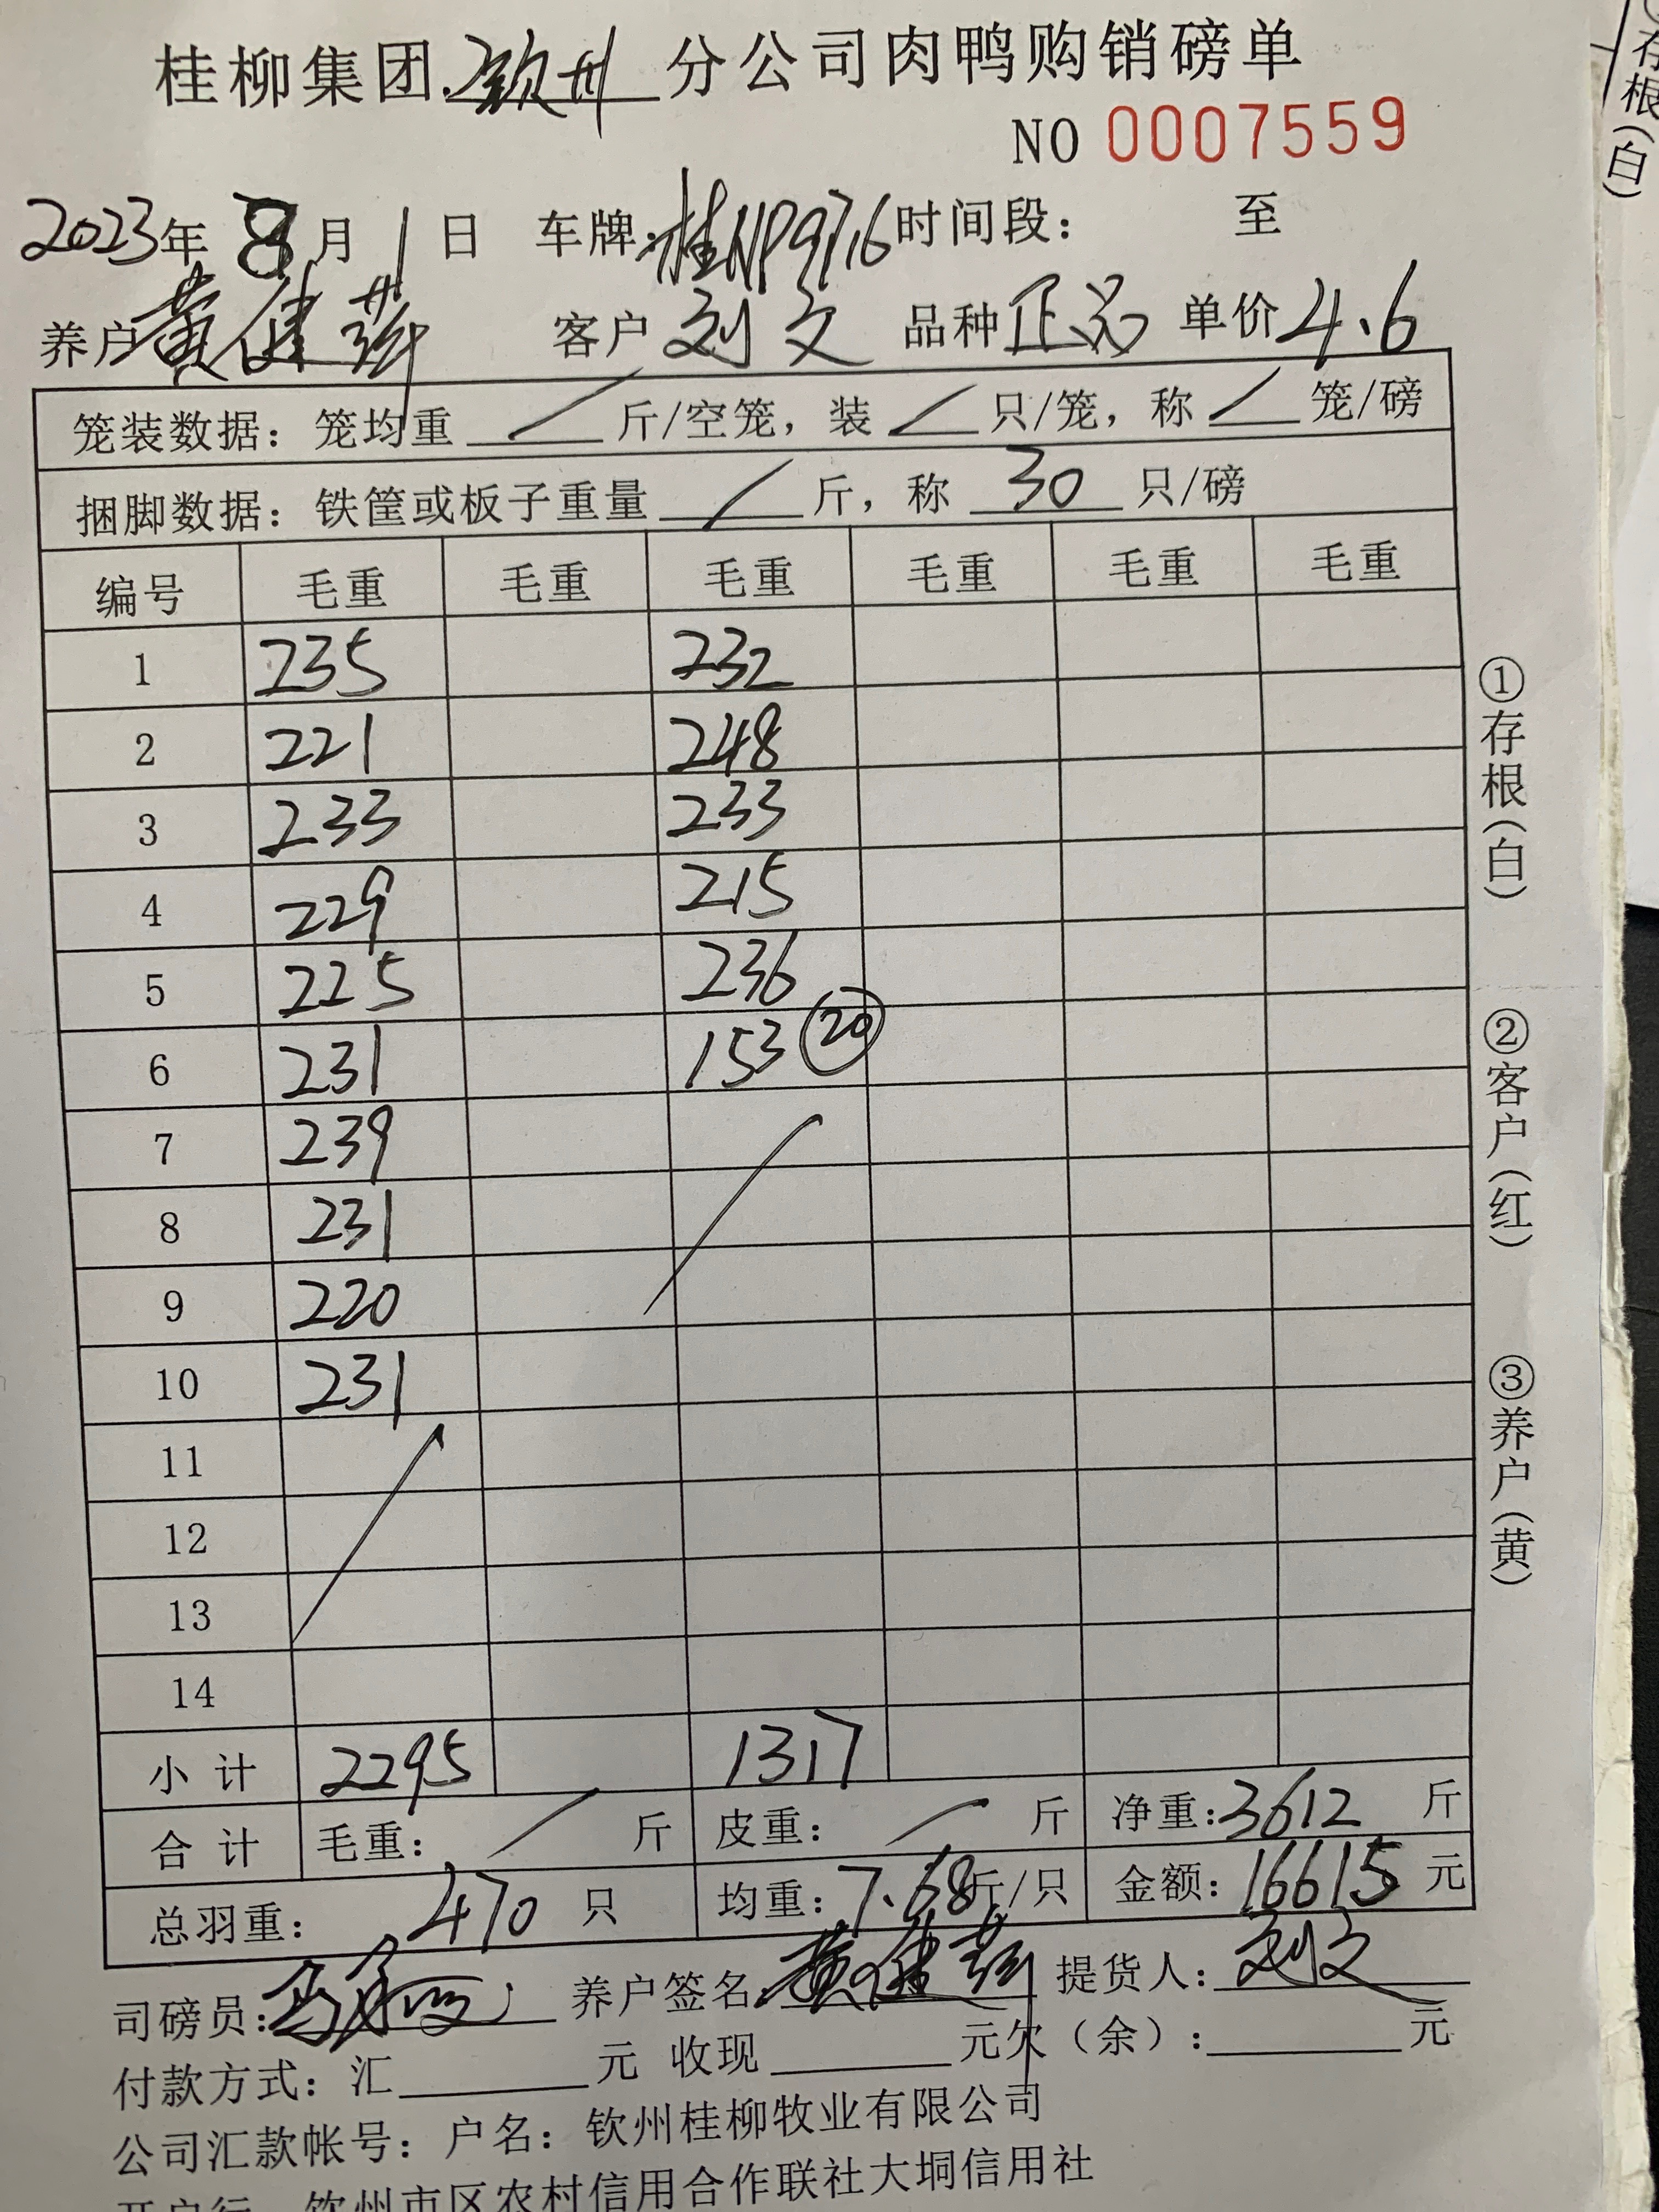 桂柳集团.钦州分公司肉鸭购销磅单
NO 0007559
2023年 8月 1日 车牌: 桂NP97,6 时间段: 至
养户 黄健 客户 刘文 品种 正品 单价 4.6
笼装数据: 笼均重 / 斤/空笼, 装 / 只/笼, 称 / 笼/磅
捆脚数据: 铁筐或板子重量 / 斤, 称 30 只/磅
编号 毛重 毛重 毛重 毛重 毛重 毛重
1 235 232
2 221 248
3 233 233
4 229 215
5 225 236
6 231 153 ⑳
7 239
8 231
9 220
10 231
11
12
13
14
小计 2295 1317
合计 毛重: / 斤 皮重: / 斤 净重: 3612 斤
总羽重: 470 只 均重: 7.68 斤/只 金额: 16615 元
司磅员: 养户签名: 黄健 提货人: 刘文
付款方式: 汇 元 收现 元欠(余): 元
公司汇款帐号: 户名: 钦州桂柳牧业有限公司
开户行 钦州市区农村信用合作联社大垌信用社
①存根(白)
②客户(红)
③养户(黄)
存根(白)